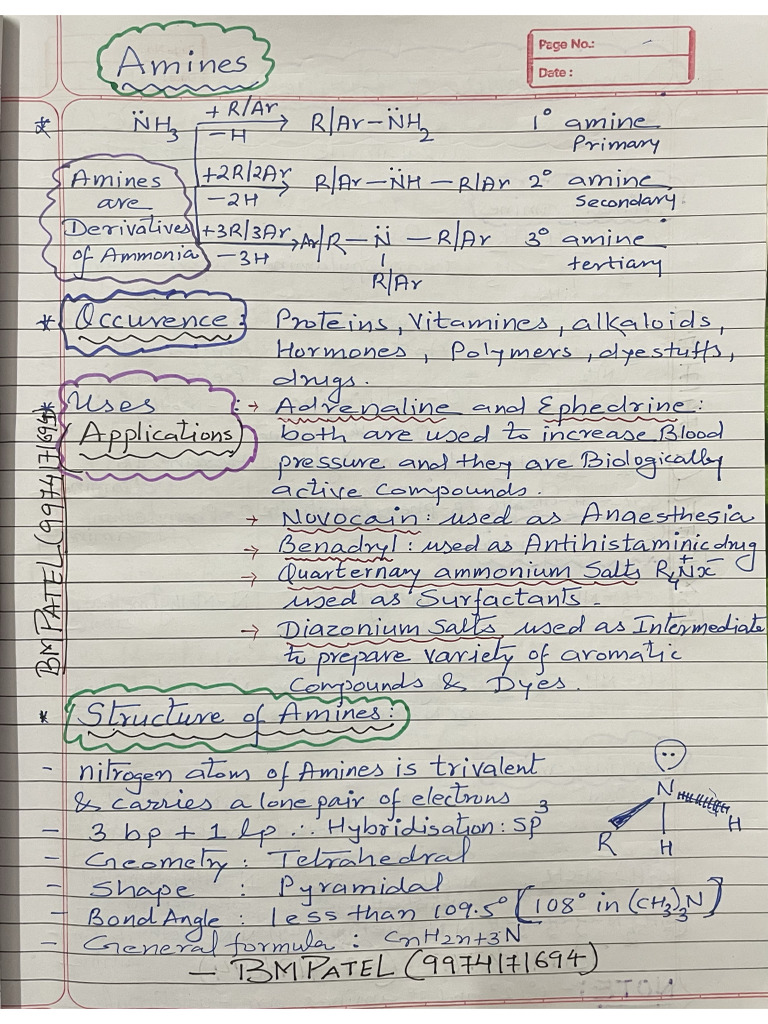 Amines
Page No.:
Date :
* N̈H₃ + R/Ar −H → R/Ar−N̈H₂ 1° amine
Primary
Amines are Derivatives of Ammonia
+2R/2Ar −2H → R/Ar−N̈H−R/Ar 2° amine
Secondary
+3R/3Ar −3H → Ar/R−N̈−R/Ar 3° amine
R/Ar tertiary
* Occurence : Proteins, Vitamines, alkaloids,
Hormones, Polymers, dyestuffs,
drugs.
* Uses (Applications) :→ Adrenaline and Ephedrine :
both are used to increase Blood
pressure and they are Biologically
active compounds.
→ Novocain : used as Anaesthesia
→ Benadryl : used as Antihistaminic drug
→ Quarternary ammonium Salts R₄N⁺x⁻
used as Surfactants.
→ Diazonium Salts used as Intermediate
to prepare variety of aromatic
Compounds & Dyes.
BM PATEL (9974171694)
* Structure of Amines :
- nitrogen atom of Amines is trivalent
& carries a lone pair of electrons
- 3 bp + 1 lp ∴ Hybridisation : sp³
- Geometry : Tetrahedral
- Shape : Pyramidal
- Bond Angle : less than 109.5° [108° in (CH₃)₃N]
- General formula : CnH2n+3N
N
R H H
- BM PATEL (9974171694)